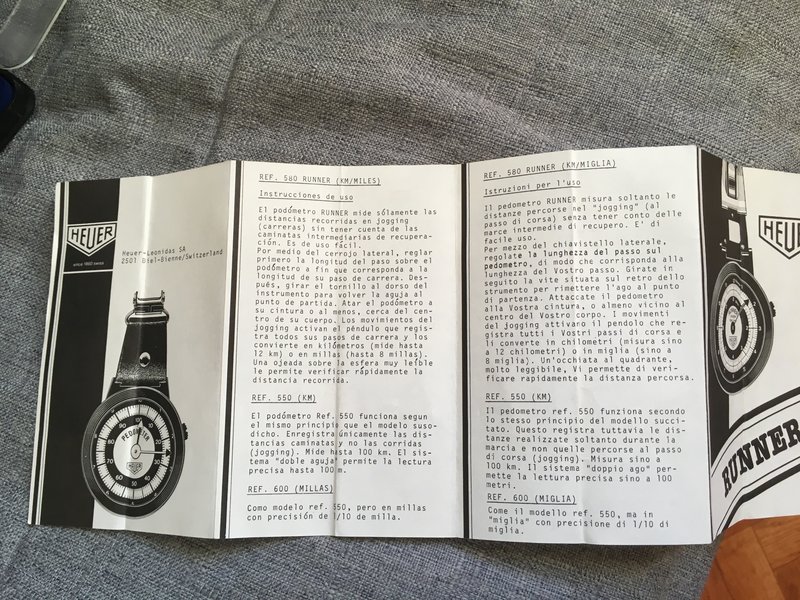 HEUER
since 1860 swiss
Heuer-Leonidas SA
2501 Biel-Bienne/Switzerland
PEDOMETER
HEUER
REF. 580 RUNNER (KM/MILES)
Instrucciones de uso
El podómetro RUNNER mide sólamente las
distancias recorridas en jogging
(carreras) sin tener cuenta de las
caminatas intermediarias de recupera-
ción. Es de uso fácil.
Por medio del cerrojo lateral, reglar
primero la longitud del paso sobre el
podómetro a fin que corresponda a la
longitud de su paso de carrera. Des-
pués, girar el tornillo al dorso del
instrumento para volver la aguja al
punto de partida. Atar el podómetro a
su cintura o al menos, cerca del cen-
tro de su cuerpo. Los movimientos del
jogging activan el péndulo que regis-
tra todos sus pasos de carrera y los
convierte en kilómetros (mide hasta
12 km) o en millas (hasta 8 millas).
Una ojeada sobre la esfera muy leíble
le permite verificar rápidamente la
distancia recorrida.
REF. 550 (KM)
El podómetro Ref. 550 funciona segun
el mismo principio que el modelo suso-
dicho. Enregistra únicamente las dis-
tancias caminatas y no las corridas
(jogging). Mide hasta 100 km. El sis-
tema "doble aguja" permite la lectura
precisa hasta 100 m.
REF. 600 (MILLAS)
Como modelo ref. 550, pero en millas
con precisión de 1/10 de milla.
REF. 580 RUNNER (KM/MIGLIA)
Istruzioni per l'uso
Il pedometro RUNNER misura soltanto le
distanze percorse nel "jogging" (al
passo di corsa) senza tener conto delle
marce intermedie di recupero. E' di
facile uso.
Per mezzo del chiavistello laterale,
regolate la lunghezza del passo sul
pedometro, di modo che corrisponda alla
lunghezza del Vostro passo. Girate in
seguito la vite situata sul retro dello
strumento per rimettere l'ago al punto
di partenza. Attaccate il pedometro
alla Vostra cintura, o almeno vicino al
centro del Vostro corpo. I movimenti
del jogging attivano il pendolo che re-
gistra tutti i Vostri passi di corsa e
li converte in chilometri (misura sino
a 12 chilometri) o in miglia (sino a
8 miglia). Un'occhiata al quadrante,
molto leggibile, Vi permette di veri-
ficare rapidamente la distanza percorsa.
REF. 550 (KM)
Il pedometro ref. 550 funziona secondo
lo stesso principio del modello succi-
tato. Questo registra tuttavia le di-
stanze realizzate soltanto durante la
marcia e non quelle percorse al passo
di corsa (jogging). Misura sino a
100 km. Il sistema "doppio ago" per-
mette la lettura precisa sino a 100
metri.
REF. 600 (MIGLIA)
Come il modello ref. 550, ma in
"miglia" con precisione di 1/10 di
miglia.
HEUER
RUNNER